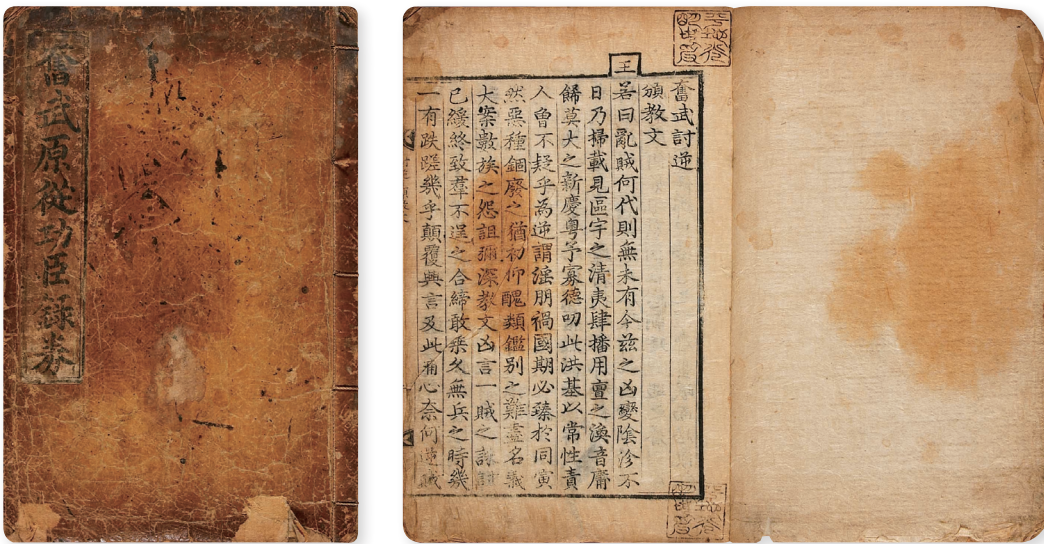 奮武原從功臣錄券
奮武討逆
頒教文
王若曰亂賊何代則無未有今玆之凶變陰沴不
日乃掃載見區宇之清夷肆播用亶之渙音庸
餙莫大之新慶粤予寡德叨此洪基以常性責
人曾不疑乎為逆謂淫朋禍國期必臻於同寅
然惡種錮廢之猶初仰醜類鑑別之難盡名義
大案數族之怨詛彌深教文凶言一賊之誅討
已緩終致羣不逞之合締敢乘久無兵之時幾
一有跌蹉幾乎顛覆興言及此痛心奈何逆賊